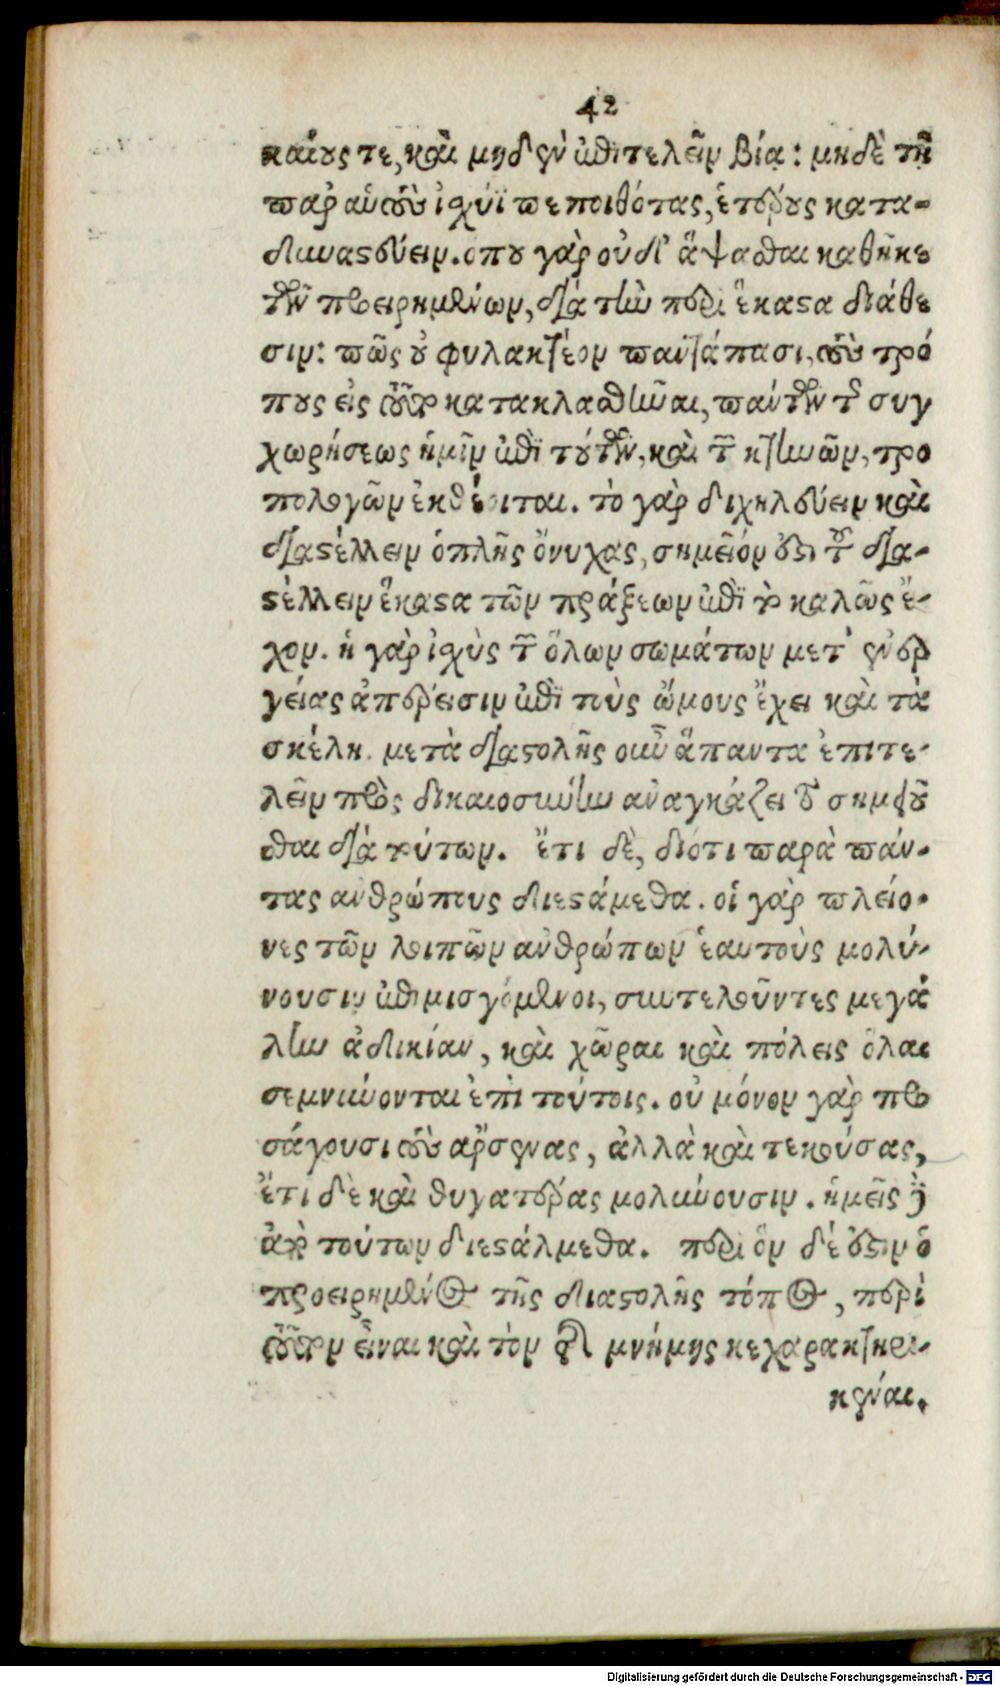 42
καίους τε, καὶ μηδὲν ἐπιτελεῖν βίᾳ: μηδὲ τῇ
παρ' αὑτοὺς ἰσχύϊ πεποιθότας, ἑτέρους κατα-
δυναστεύειν. ὅπου γὰρ οὐδ' ἅψασθαι καθῆκε
τῶν προειρημένων, διὰ τὴν περὶ ἕκαστα διάθε
σιν: πῶς οὐ φυλακτέον παντάπασι, τοὺς τρό
πους εἰς τοῦτο κατακλασθῆναι, πάντων τῆς συγ
χωρήσεως ἡμῖν ἐπὶ τούτων, καὶ τῶν κτηνῶν, τρο
πολογῶν ἐκτέθειται. τὸ γὰρ διχηλεύειν καὶ
διαστέλλειν ὁπλῆς ὄνυχας, σημεῖόν ἐστι τοῦ δια-
στέλλειν ἕκαστα τῶν πράξεων ἐπὶ τὸ καλῶς ἔ-
χον. ἡ γὰρ ἰσχὺς τῶν ὅλων σωμάτων μετ' ἐνερ
γείας ἀπέρεισιν ἐπὶ τοὺς ὤμους ἔχει καὶ τὰ
σκέλη. μετὰ διαστολῆς οὖν ἅπαντα ἐπιτε-
λεῖν πρὸς δικαιοσύνην ἀναγκάζει τὸ σημειοῦ
σθαι διὰ τούτων. ἔτι δὲ, διότι παρὰ πάν-
τας ἀνθρώπους διεστάμεθα. οἱ γὰρ πλείο-
νες τῶν λοιπῶν ἀνθρώπων ἑαυτοὺς μολύ-
νουσιν ἐπιμισγόμενοι, συντελοῦντες μεγά
λην ἀδικίαν, καὶ χῶραι καὶ πόλεις ὅλαι
σεμνύνονται ἐπὶ τούτοις. οὐ μόνον γὰρ προ
σάγουσι τοὺς ἄρσενας, ἀλλὰ καὶ τεκούσας,
ἔτι δὲ καὶ θυγατέρας μολύνουσιν. ἡμεῖς δὲ
ἀπὸ τούτων διεστάλμεθα. περὶ ὃν δέ ἐστιν ὁ
προειρημένος τῆς διαστολῆς τόπος, περὶ
τοῦτον εἶναι καὶ τὸν τῆς μνήμης κεχαρακτηρι-
κέναι.
Digitalisierung gefördert durch die Deutsche Forschungsgemeinschaft - DFG